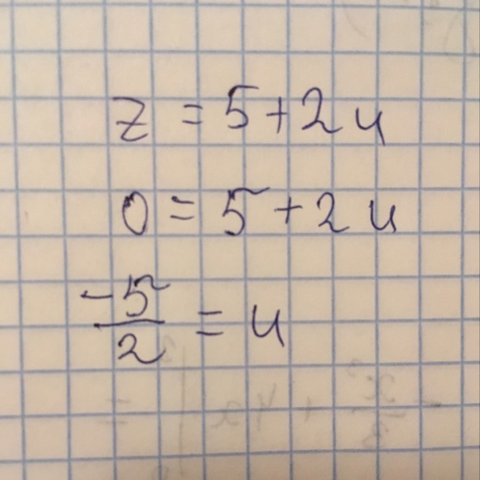 z = 5 + 2u
0 = 5 + 2u
-5/2 = u